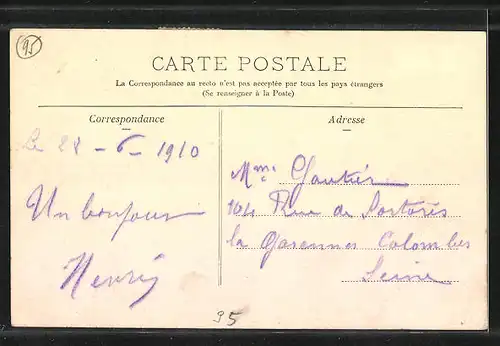 95
CARTE POSTALE
La Correspondance au recto n'est pas acceptée par tous les pays étrangers
(Se renseigner à la Poste)
Correspondance
Adresse
Le 28 - 6 - 1910
Un bonjour
Henri
Mme Gautier
104 Rue de
la Garennes Colombes
Seine
95